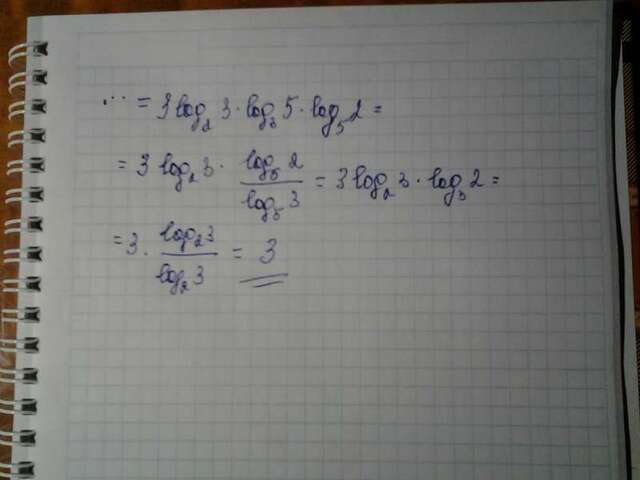 ... = 3 log₂ 3 · log₃ 5 · log₅ 2 =
= 3 log₂ 3 · log₅ 2 / log₅ 3 = 3 log₂ 3 · log₃ 2 =
= 3 · log₂ 3 / log₂ 3 = 3